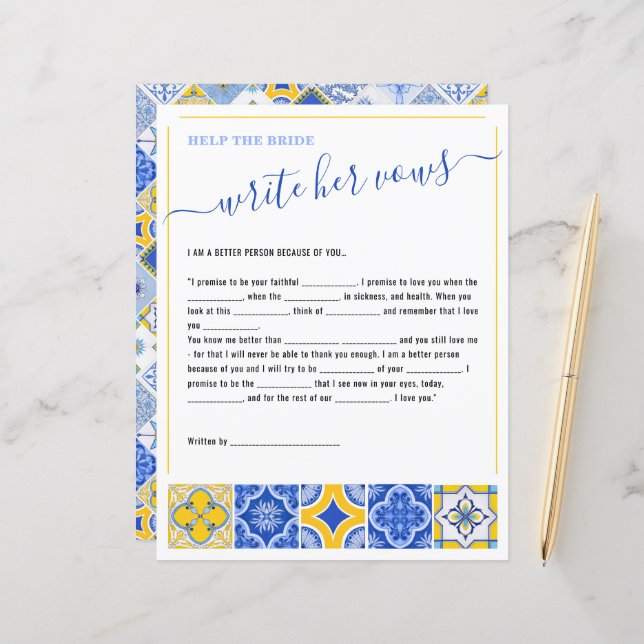 HELP THE BRIDE
write her vows
I AM A BETTER PERSON BECAUSE OF YOU...
"I promise to be your faithful ______________. I promise to love you when the
______________, when the ______________, in sickness, and health. When you
look at this ______________, think of ______________ and remember that I love
you ______________.
You know me better than ______________ ______________ and you still love me
- for that I will never be able to thank you enough. I am a better person
because of you and I will try to be ______________ of your ______________. I
promise to be the ______________ that I see now in your eyes, today,
______________, and for the rest of our ______________. I love you."
Written by ____________________________